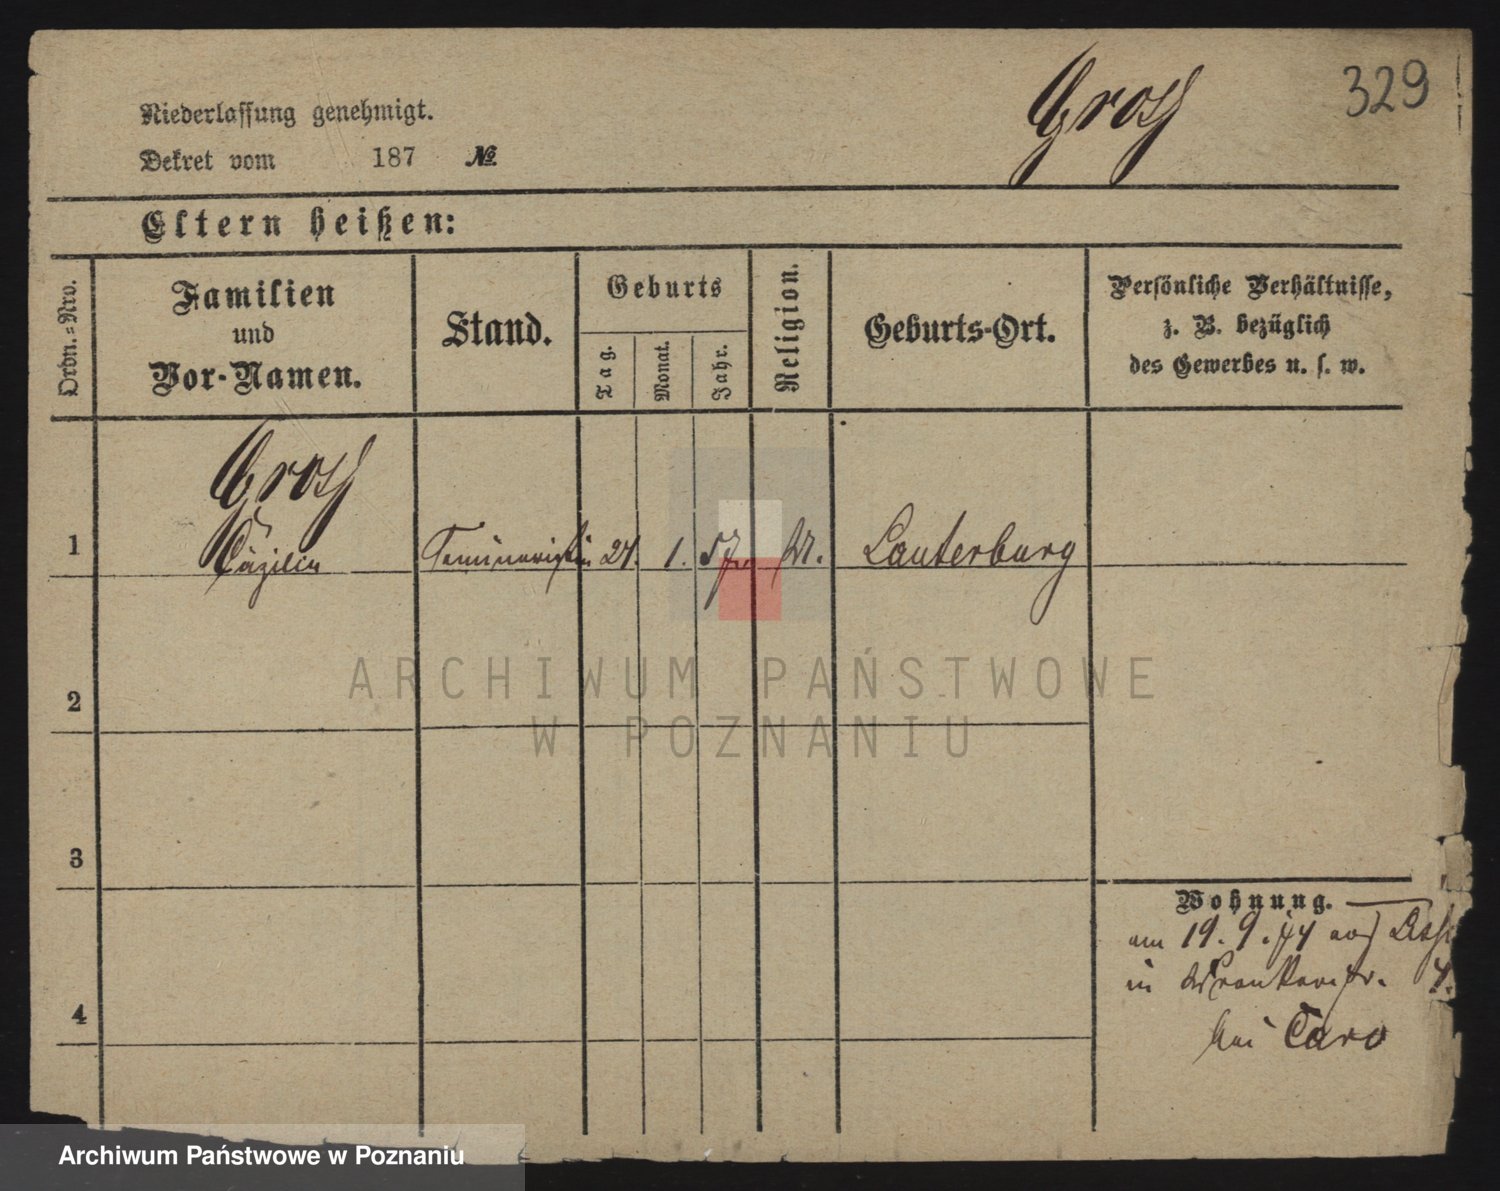 329
Gross
Niederlassung genehmigt.
Dekret vom 187 №
Eltern heißen:
Ordn.=Nro.
Familien
und
Vor-Namen.
Stand.
Geburts
Tag.
Monat.
Jahr.
Religion.
Geburts-Ort.
Persönliche Verhältnisse,
z. B. bezüglich
des Gewerbes u. s. w.
Gross
1 Cäzilie Seminaristin 24. 1. 57 Lauterburg
2
3
4
Wohnung.
am 19. 9. 74 aus
in
bei Caro
ARCHIWUM PAŃSTWOWE
W POZNANIU
Archiwum Państwowe w Poznaniu